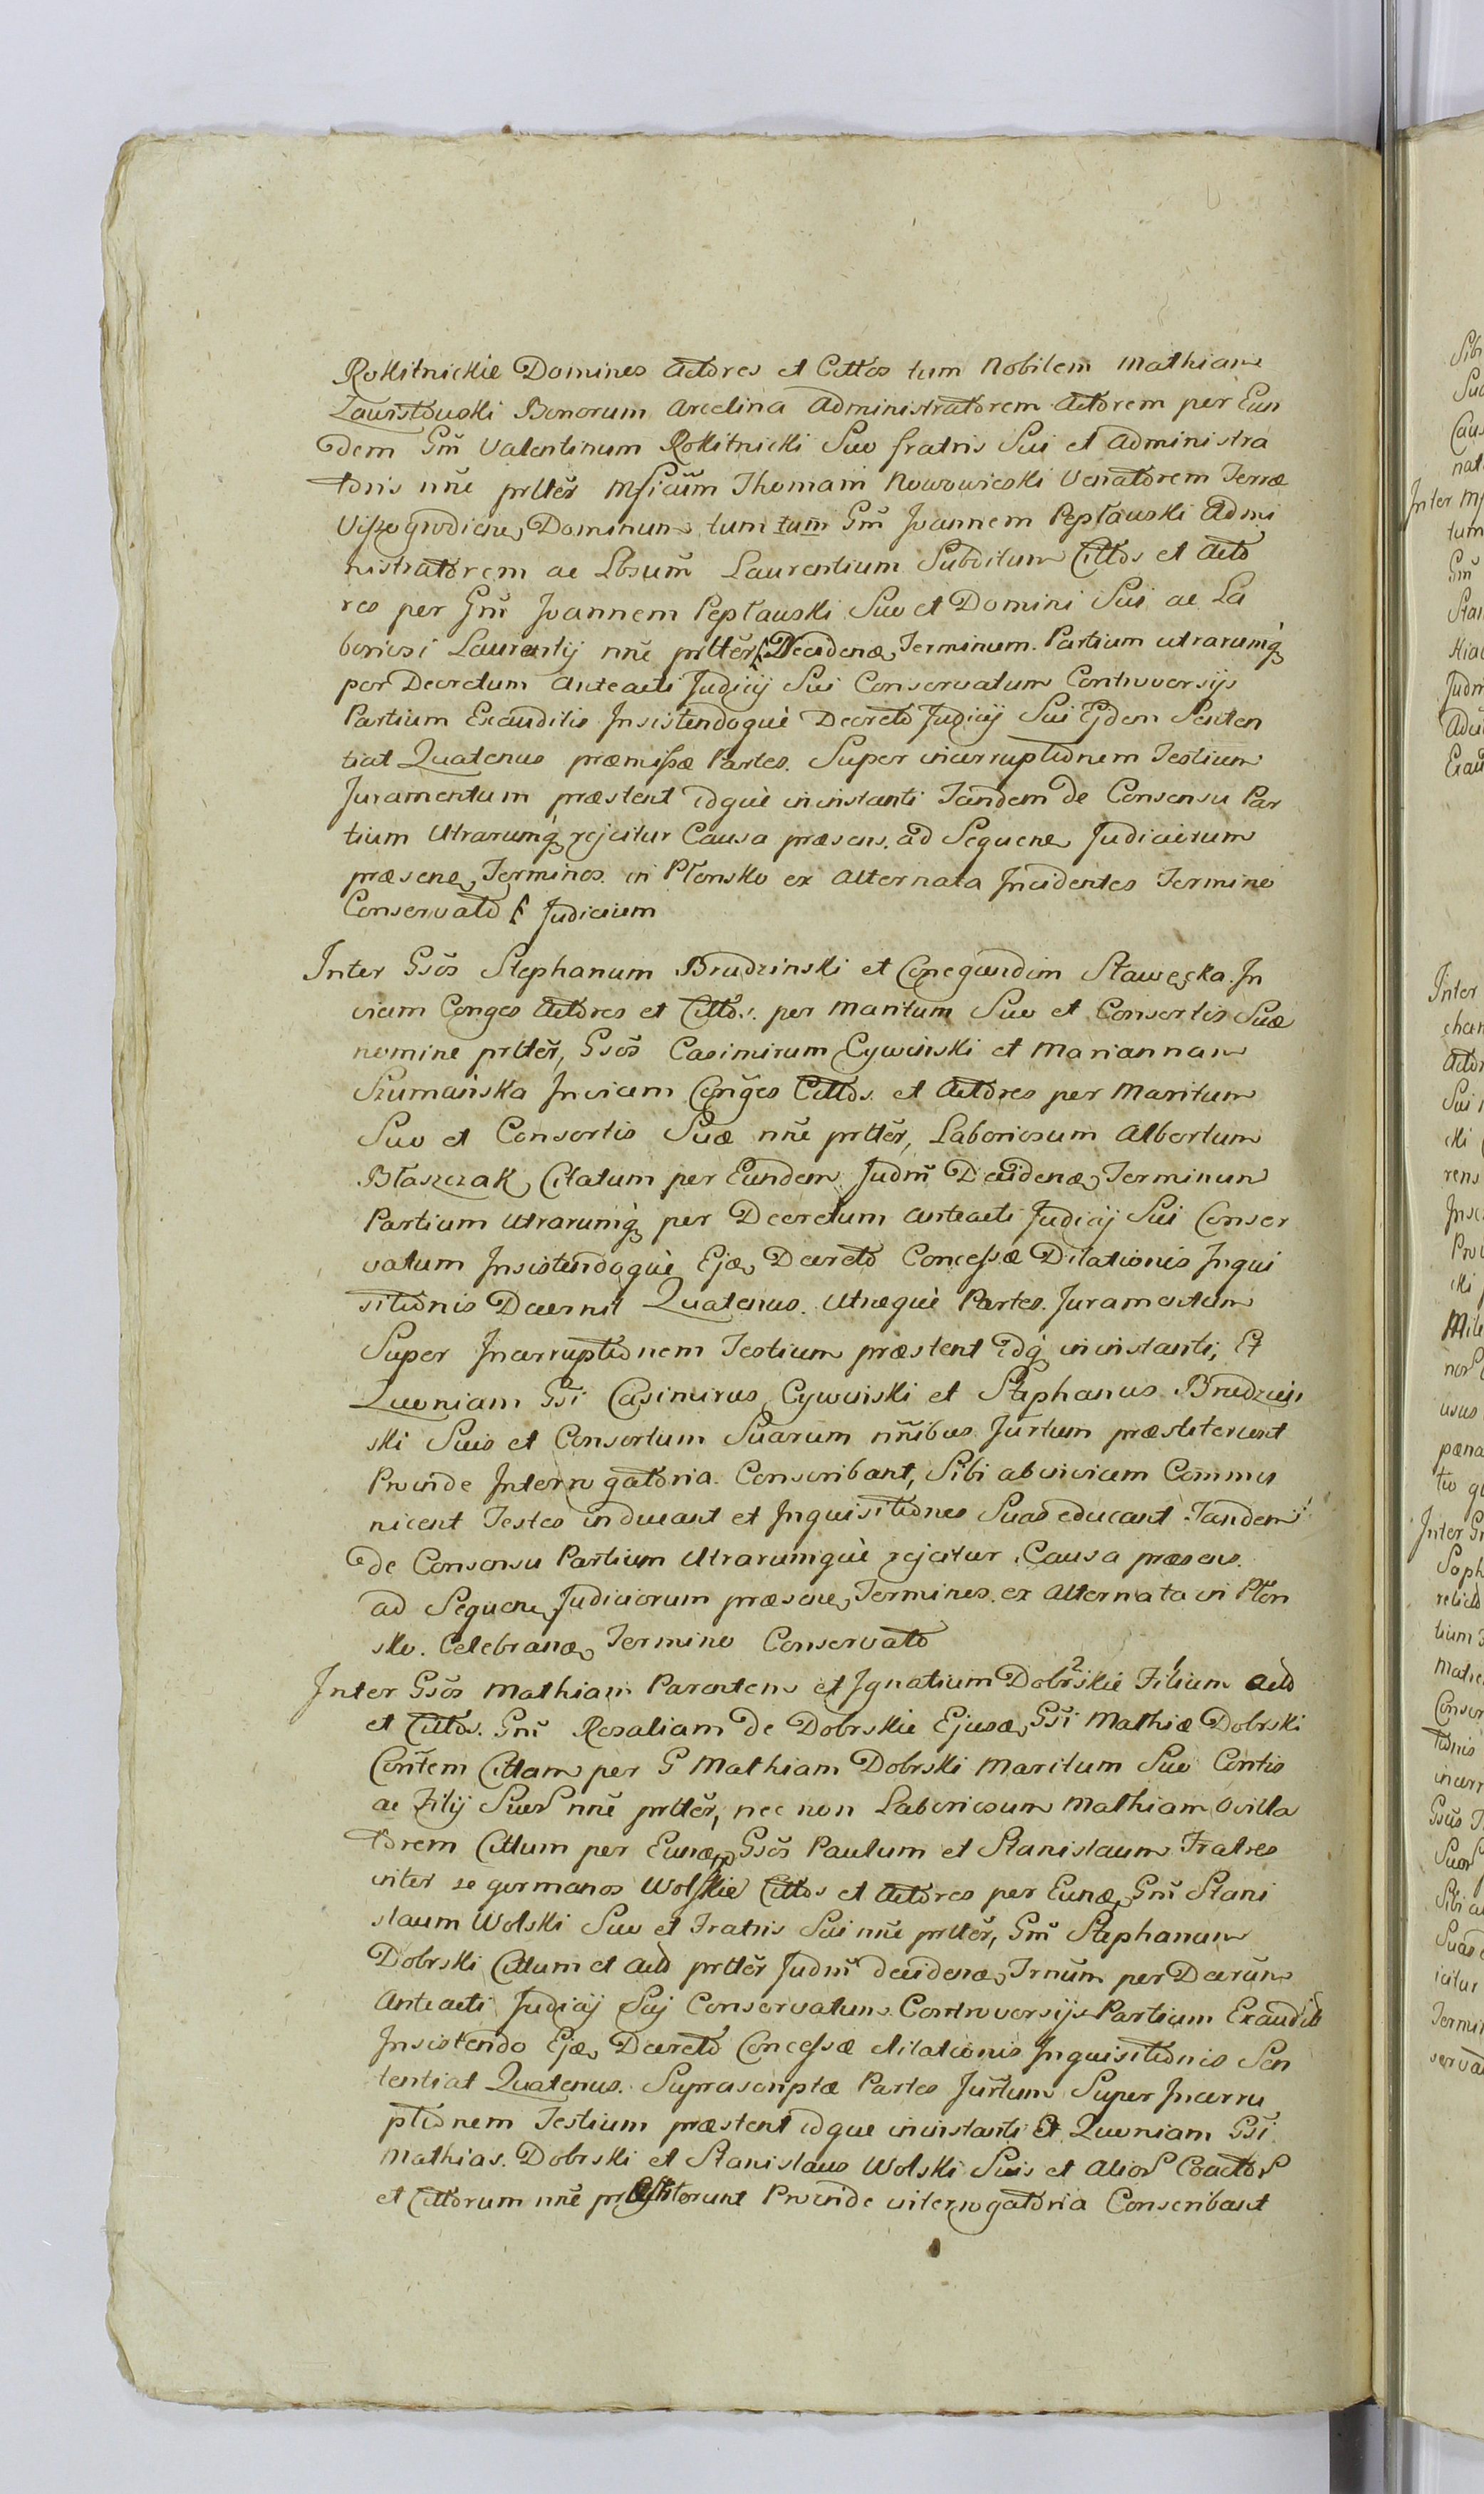 Rokitnickie Dominos Actores et Cittos tum Nobilem Mathiam
Ławrstowski Bonorum Arcelina Administratorem Actorem per Eun
dem Gm̃ Valentinum Rokitnicki Suo fratris Sui et Administra
toris nñe prltẽr Mficũm Thomam Nowowieski Venatorem Terræ
Viszogrodien, Dominum tum tum Gm̃ Joannem Peptauski Admi
nistratorem ac Lbsum̃ Laurentium Subditum Cittos et Acto
res per Gm̃ Joannem Pepłauski Suo et Domini Sui ac La
boriosi Laurentij nñe prltẽr, Decidenæ Terminum Partium utrarumq
per Decretum anteacti Judicij Sui Conservatum Controversijs
Partium Exauditis Insistendoquè Decreto Judicij Sui Ejdem Senten
tiat Quatenus præmissæ Partes Super incorruptionem Testium
Juramentum præstent idquè ininstanti Tandem de Consensu Par
tium Utrarumq rejcitur Causa præsens ad Sequen Judiciorum
præsen Terminos in Płonsko ex Alternata Incidentes Termino
Conservato Judicium
Inter Gsõs Stephanum Brudzinski et Conegundim Sławęcka In
vicem Conges Actores et Cittos per Maritum Suo et Consortis Suæ
nomine prltẽr, Gsõs Casimirum Cywinski et Mariannam
Szumańska Invicem Conges Cittos et Actores per Maritum
Suo et Consortis Suæ nñe prltẽr, Laboriosum Albertum
Błaszczak Citatum per Eundem Judm̃ Decidenæ Terminum
Partium Utrarumq per Decretum anteacti Judicij Sui Conser
vatum Insistendoquè Ejdem Decreto Concessæ Dilationis Inqui
sitionis Decernit Quatenus Utræquè Partes Juramentum
Super Incorruptionem Testium præstent idq ininstanti, Et
Quoniam Gsi Casimirus Cywinski et Stephanus Brudzin
ski Suis et Consortum Suarum nñibus Jurtum præstiterunt
Proinde Interrogatoria Conscribant, Sibi abinvicem Commu
nicent Testes inducant et Inquisitiones Suas educant Tandem
de Consensu Partium Utrarumquè rejcitur Causa præsens
ad Sequen Judiciorum præsen Terminos ex Alternata in Płon
sko Celebran Termino Conservato
Inter Gsõs Mathiam Parentem et Ignatium Dobrskie 2 Filium 1 Acto
et Cittos Gm̃ Rosaliam de Dobrskie Ejusd Gsi Mathiæ Dobrski
Contem Cittam per G Mathiam Dobrski Maritum Suo Contis
ac Filij Suor nñe prltẽr, nec non Laboriosum Mathiam Ovilla
torem Cittum per Eund Gsõs Paulum et Stanislaum Fratres
inter se germanos Wolskie Cittos et Actores per Eund Gm̃ Stani
slaum Wolski Suo et Fratris Sui nñe prltẽr, Gm̃ Stephanum
Dobrski Cittum et Acto prltẽr Judm̃ decidenæ Trnum per Decrum
Anteacti Judicij Suj Conservatum Controversijs Partium Exaudit
Insistendo Ejd Decreto Concessæ dilationis Inquisitionis Sen
tentiat Quatenus Suprascriptæ Partes Jurtum Super Incorru
ptionem Testium præstent idque ininstanti Et Quoniam Gsi
Mathias Dobrski et Stanislaus Wolski Suis et Alior Coactor
et Cittorum nñe præstiterunt Proinde interrogatoria Conscribant